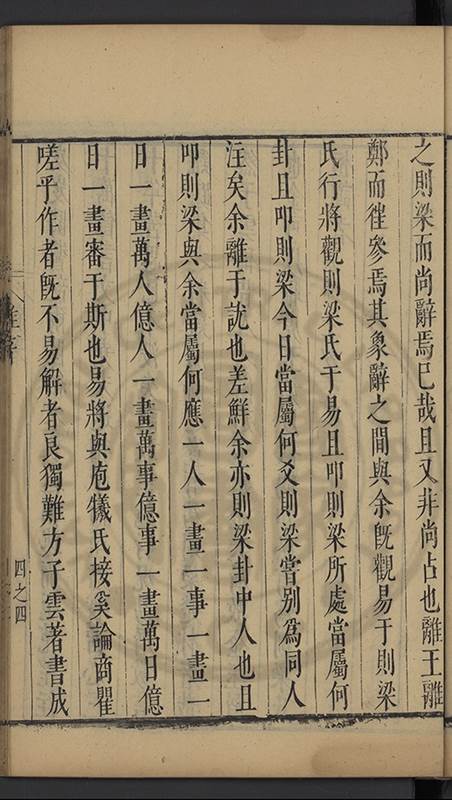 之則梁而尚辭焉已哉且又非尚占也離王離
鄭而徃參焉其象辭之間與余旣觀易于則梁
氏行將觀則梁氏于易且叩則梁所處當屬何
卦且叩則梁今日當屬何爻則梁嘗別爲同人
注矣余離于說也差鮮余亦則梁卦中人也且
叩則梁與余當屬何應一人一畫一事一畫一
日一畫萬人億人一畫萬事億事一畫萬日億
日一畫審于斯也易將與庖犧氏接奚論商瞿
嗟乎作者旣不易解者良獨難方子雲著書成
四之四